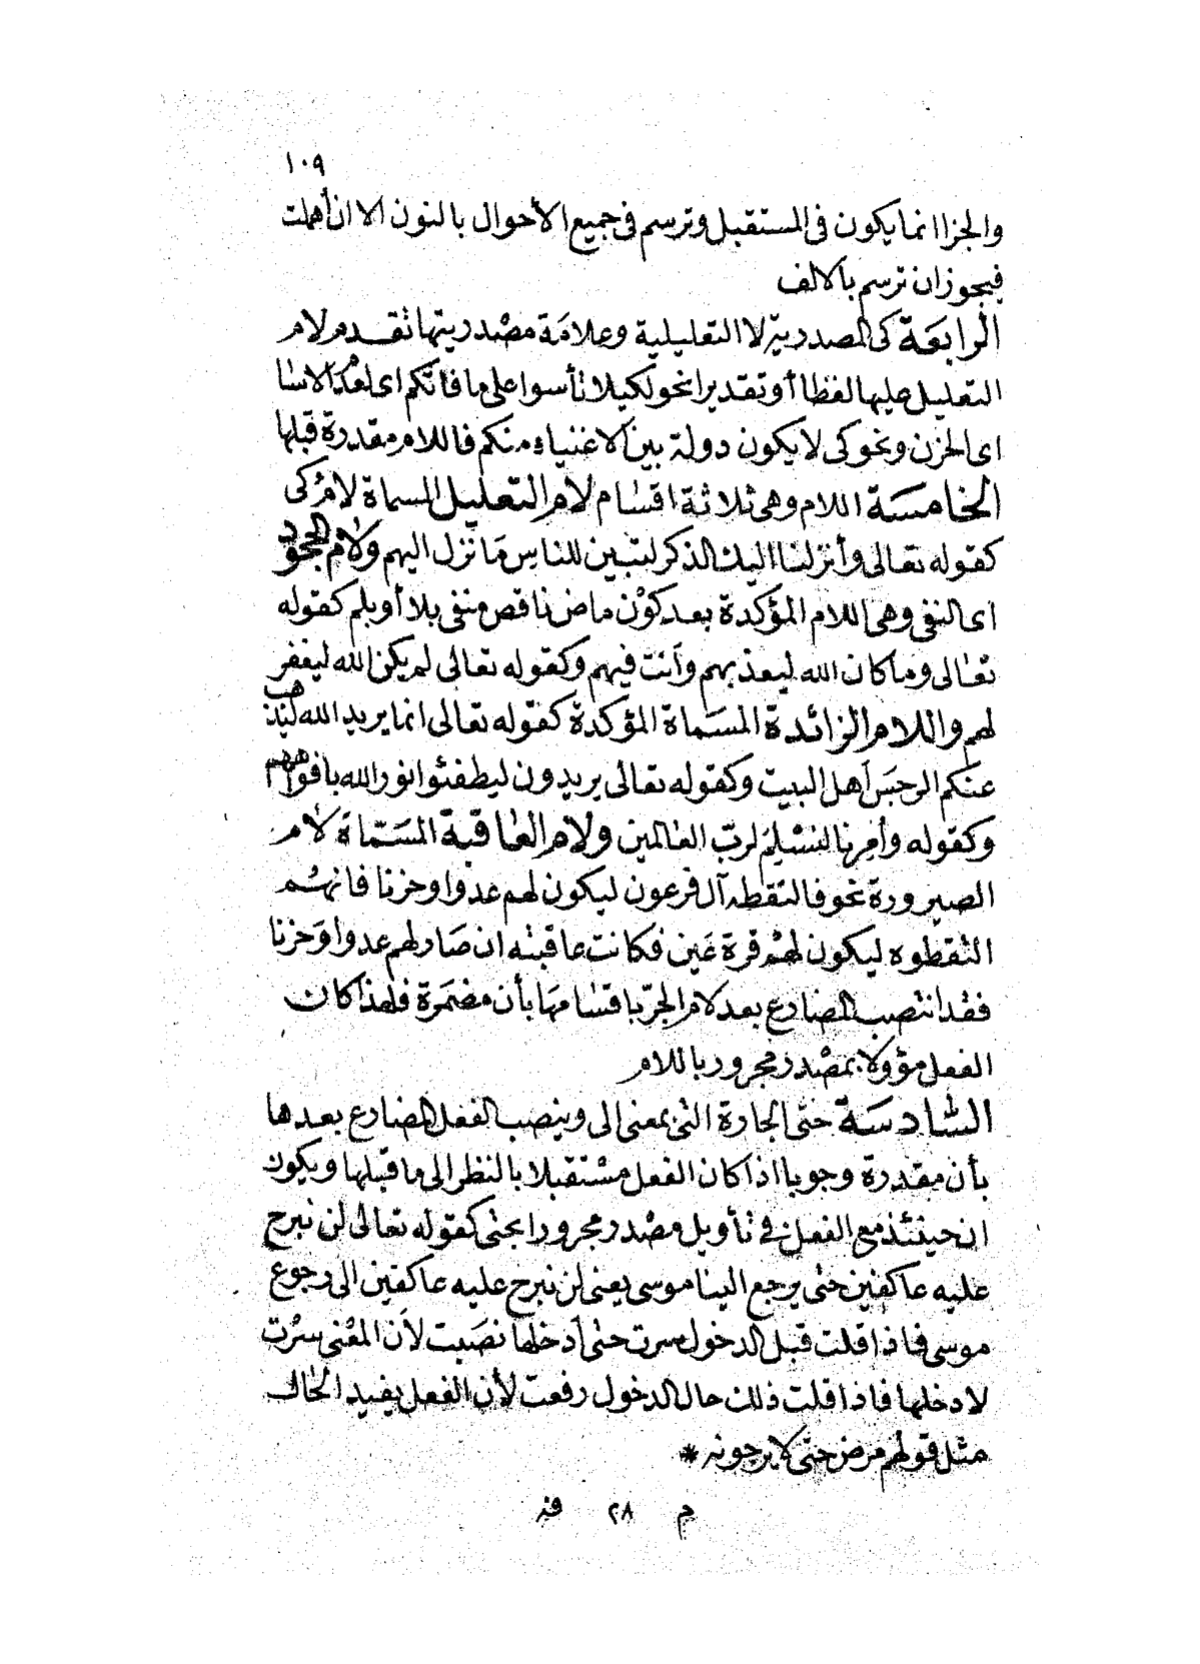 ١٠٩
والجزاانما يكون فى المستقبل وترسم فى جميع الأحوال بالنون الا ان أهملت
فيجوز ان ترسم بالالف
الرابعة كى المصدرية لا التعليلية وعلامة مصدريتها تقدم لام
التعليل عليها لفظا أو تقديرا نحو لكيلا تأسوا على ما فاتكم اى لعدم الاسا
اى الحزن ونحو كى لا يكون دولة بين الاغنياء منكم فاللام مقدرة قبلها
الخامسة اللام وهى ثلاثة اقسام لام التعليل المسماة لام كى
كقوله تعالى وأنزلنا اليك الذكر لتبين للناس ما نزل اليهم ولام الجحود
اى النفى وهى اللام المؤكدة بعد كون ماض ناقص منفى بلا أو بلم كقوله
تعالى وما كان الله ليعذبهم وأنت فيهم وكقوله تعالى لم يكن الله ليغفر
لهم واللام الزائدة المسماة المؤكدة كقوله تعالى انما يريد الله ليذهب
عنكم الرجس أهل البيت وكقوله تعالى يريدون ليطفئوا نور الله بافواههم
وكقوله وأمرنا لنسلم لرب العالمين ولام العاقبة المسماة لام
الصيرورة نحو فالتقطه آل فرعون ليكون لهم عدوا وحزنا فانهم
التقطوه ليكون لهم قرة عين فكانت عاقبته ان صار لهم عدوا وحزنا
فقد انتصب المضارع بعد لام الجر باقسامها بأن مضمرة فلهذا كان
الفعل مؤولا بمصدر مجرور باللام
السادسة حتى الجارة التى بمعنى الى وينصب الفعل المضارع بعدها
بأن مقدرة وجوبا اذا كان الفعل مستقبلا بالنظر الى ما قبلها ويكون
ان حينئذ مع الفعل فى تأويل مصدر مجرورا بحتى كقوله تعالى لن نبرح
عليه عاكفين حتى يرجع الينا موسى يعنى لن نبرح عليه عاكفين الى رجوع
موسى فاذا قلت قبل الدخول سرت حتى أدخلها نصبت لأن المعنى سرت
لادخلها فاذا قلت ذلك حال الدخول رفعت لأن الفعل يفيد الحال
مثل قولهم مرض حتى لا يرجونه *
م ٢٨ فذ